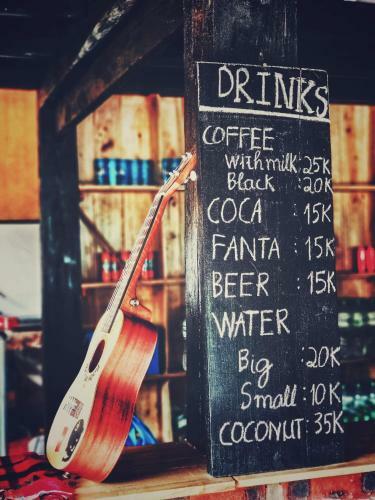 DRINKS
COFFEE
with milk : 25K
Black : 20K
COCA : 15K
FANTA : 15K
BEER : 15K
WATER
Big : 20K
Small : 10K
COCONUT : 35K